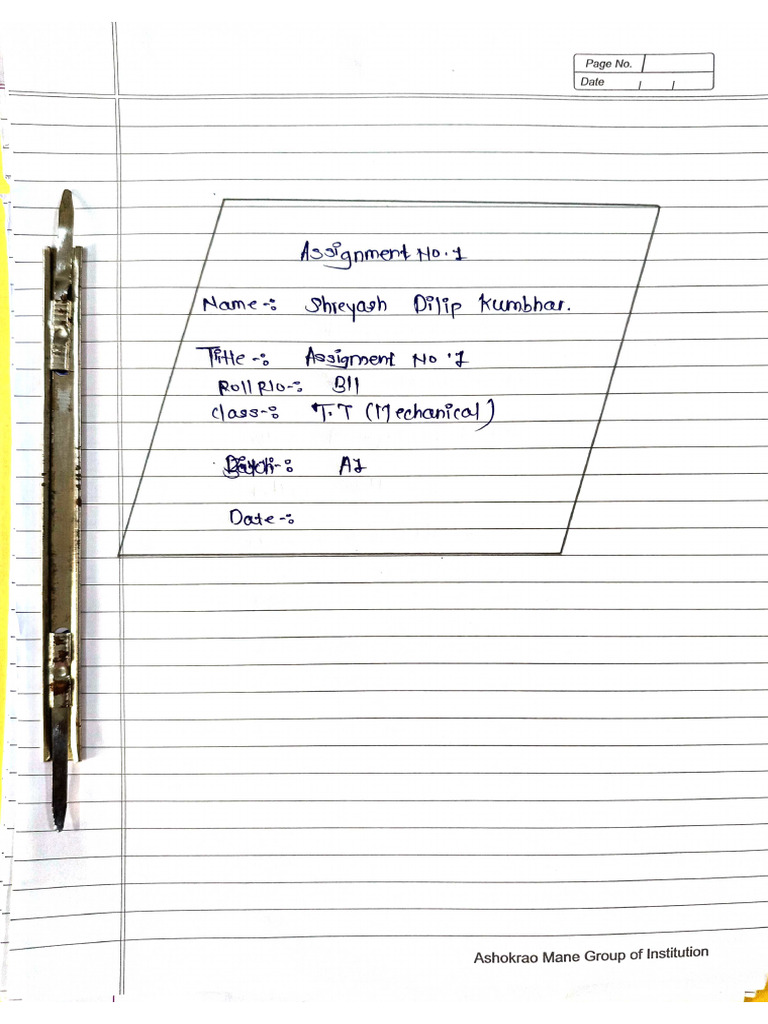 Page No.
Date / /
Assignment No. 1
Name -: Shreyash Dilip Kumbhar.
Title -: Assigment No . 1
Roll No -: B11
Class -: T.T (Mechanical)
Batch -: A1
Date -:
Ashokrao Mane Group of Institution